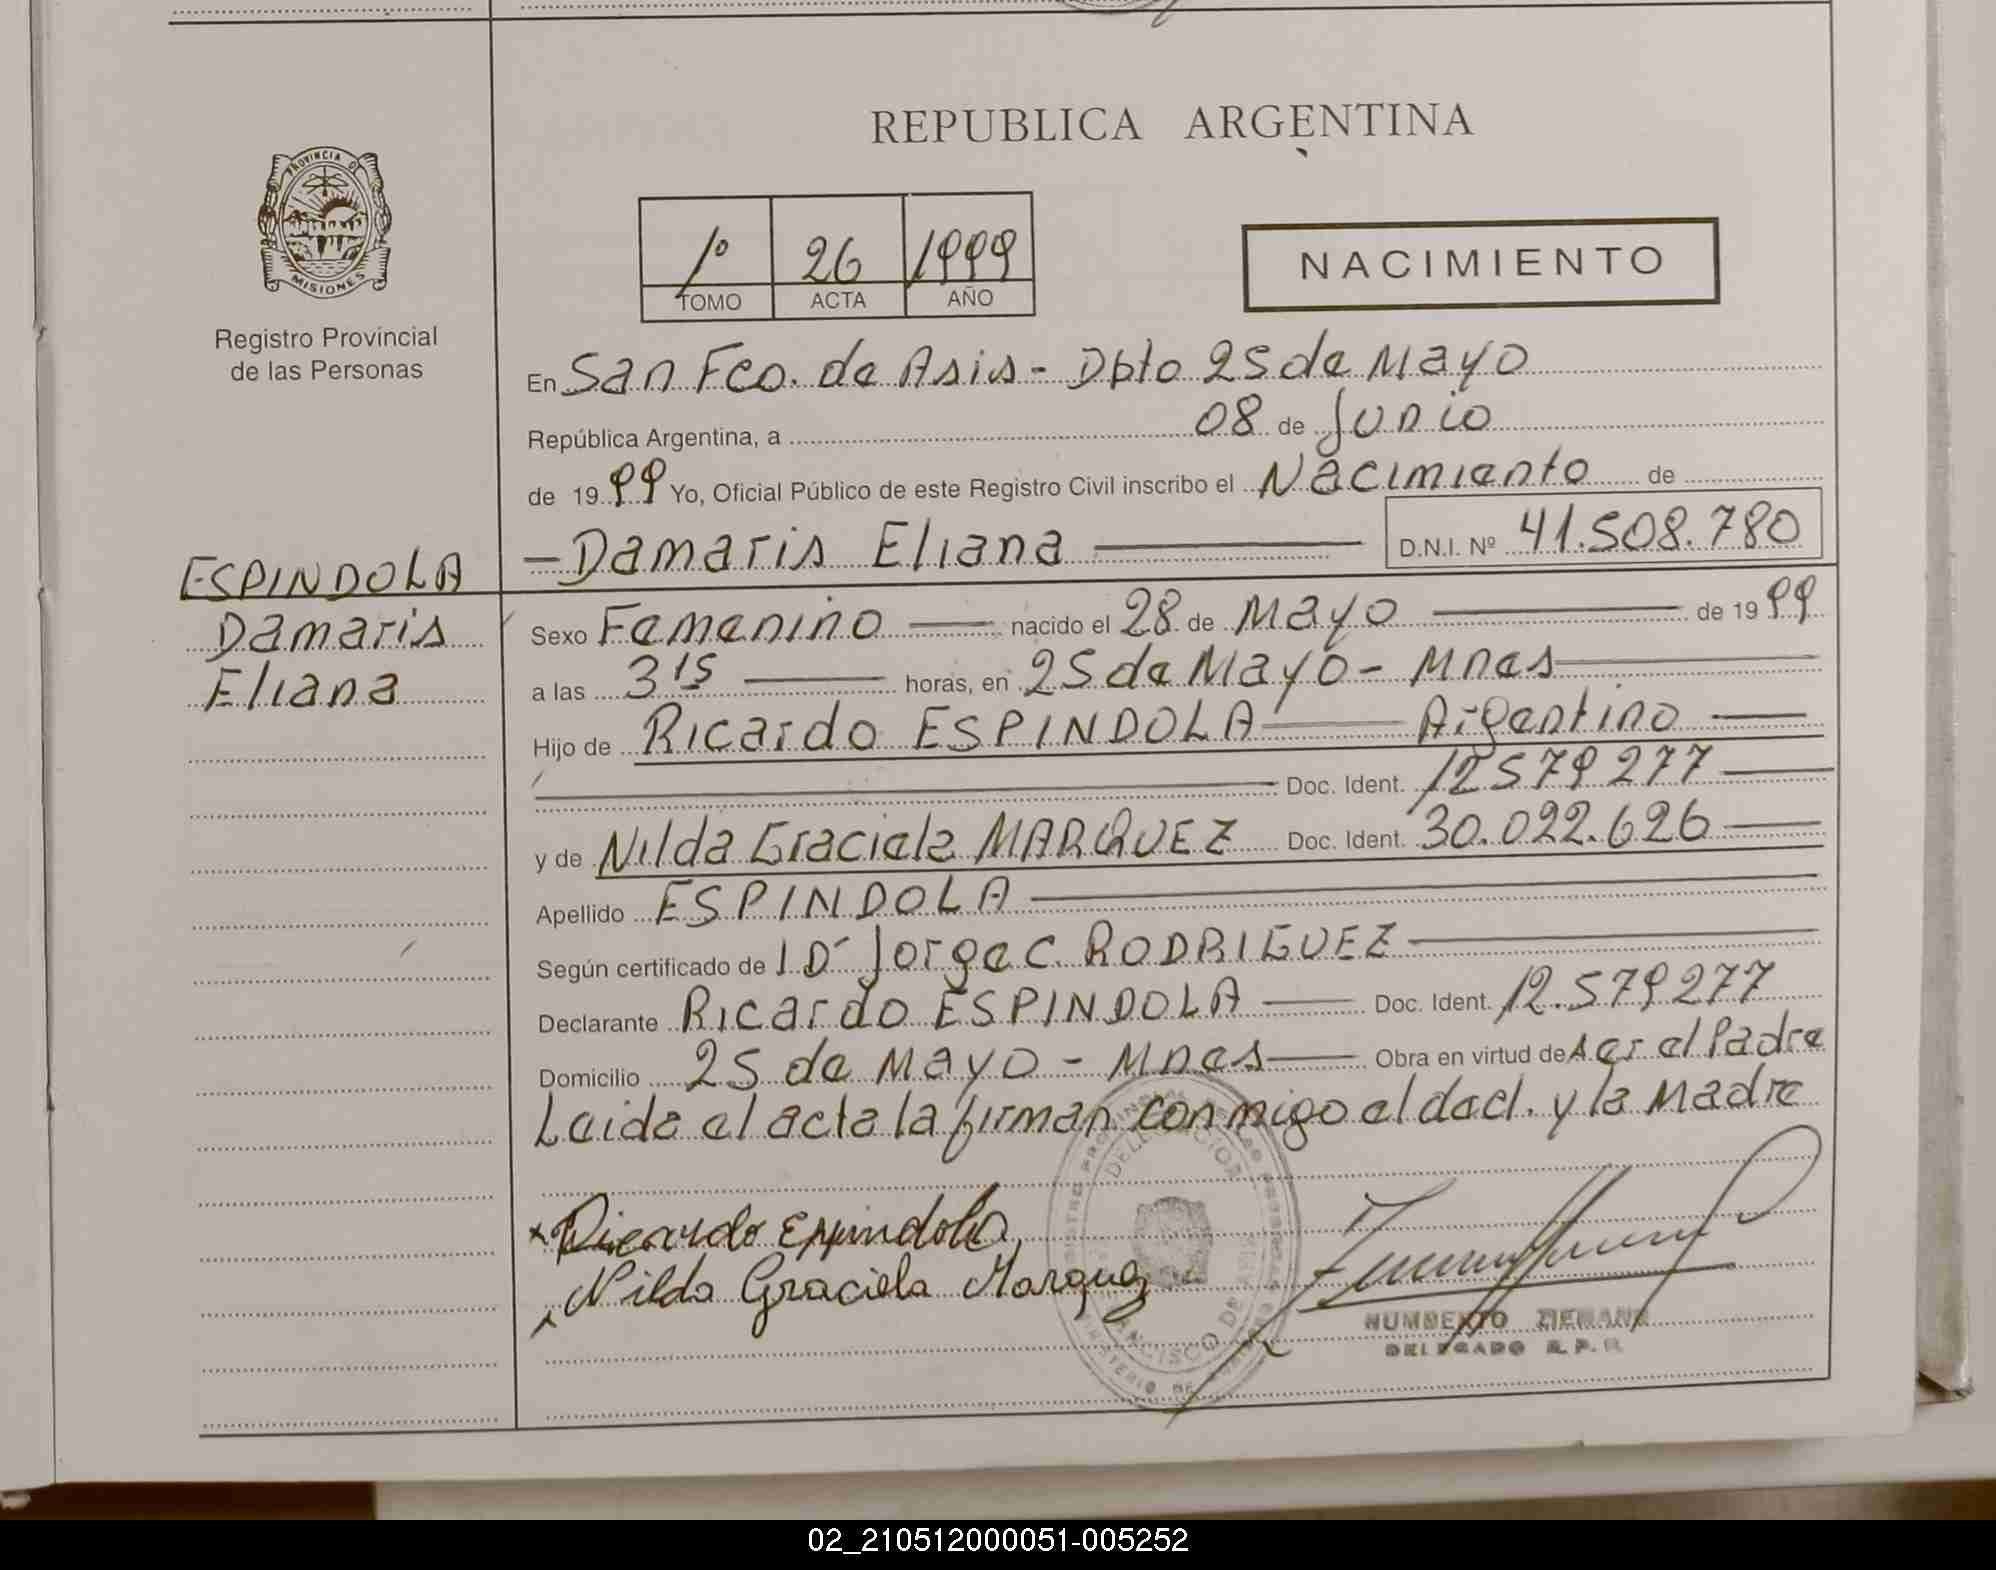 REPUBLICA ARGENTINA
PROVINCIA DE
MISIONES
Registro Provincial
de las Personas
1º 26 1999
TOMO ACTA AÑO
NACIMIENTO
En San Fco. de Asis - Dpto 25 de Mayo
República Argentina, a 08 de Junio
de 1999 Yo, Oficial Público de este Registro Civil inscribo el Nacimiento de
- Damaris Eliana D.N.I. Nº 41.508.780
ESPINDOLA
Damaris
Eliana
Sexo Femenino nacido el 28 de Mayo de 1999
a las 3 15 horas, en 25 de Mayo - Mnes
Hijo de Ricardo ESPINDOLA Argentino
Doc. Ident. 12579277
y de Nilda Graciela MARQUEZ Doc. Ident. 30.022.626
Apellido ESPINDOLA
Según certificado de Dr Jorge C. RODRIGUEZ
Declarante Ricardo ESPINDOLA Doc. Ident. 12.579277
Domicilio 25 de Mayo - Mnes Obra en virtud de ser el Padre
Leida el acta la firman conmigo el decl. y la Madre
Ricardo Espindola
Nilda Graciela Marquez
DELEGADO R.P.P.
02_210512000051-005252